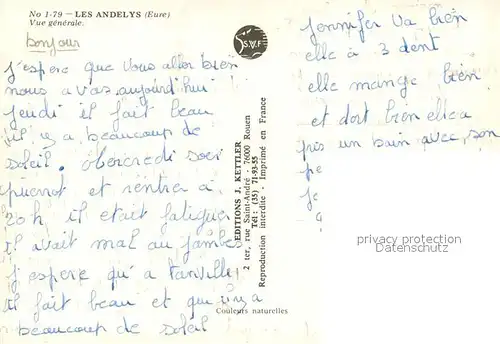 No 1-79 – LES ANDELYS (Eure)
Vue générale.
bonjour
j'espere que vous aller bien
nous a vas aujourd'hui
jeudi il fait beau
il y a beaucoup de
soleil. mercredi soir
pierrot et rentrer a
20h il etait fatiguer
il avait mal au jambe
j'espere qu'a tanville
il fait beau et qu'il y a
beaucoup de soleil
S.V.F
EDITIONS J. KETTLER
2 ter, rue Saint-André - 76000 Rouen
Tél.: (35) 71-93-55
Reproduction interdite - Imprimé en France
Couleurs naturelles
Jennifer va bien
elle à 3 dent
elle mange bien
et dort bien elle a
pris un bain avec son
pe
je
privacy protection
Datenschutz